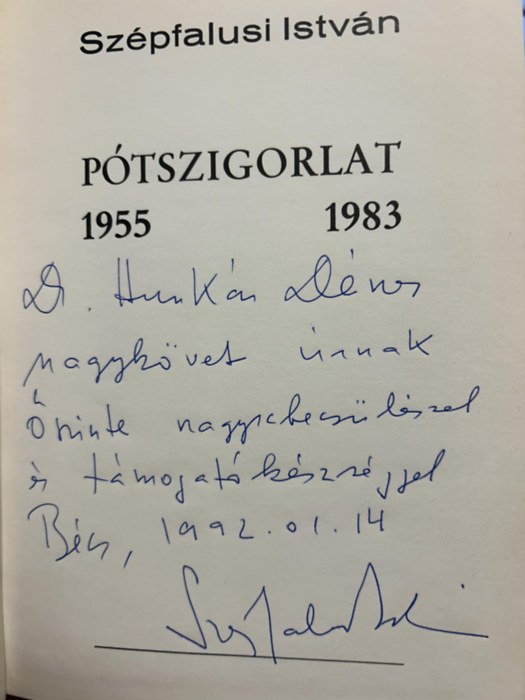 Szépfalusi István
PÓTSZIGORLAT
1955 1983
Dr. Hunkár Dénes
nagykövet úrnak
őszinte nagyrabecsüléssel
és támogatókészséggel
Bécs, 1992.01.14
Szépfalusi